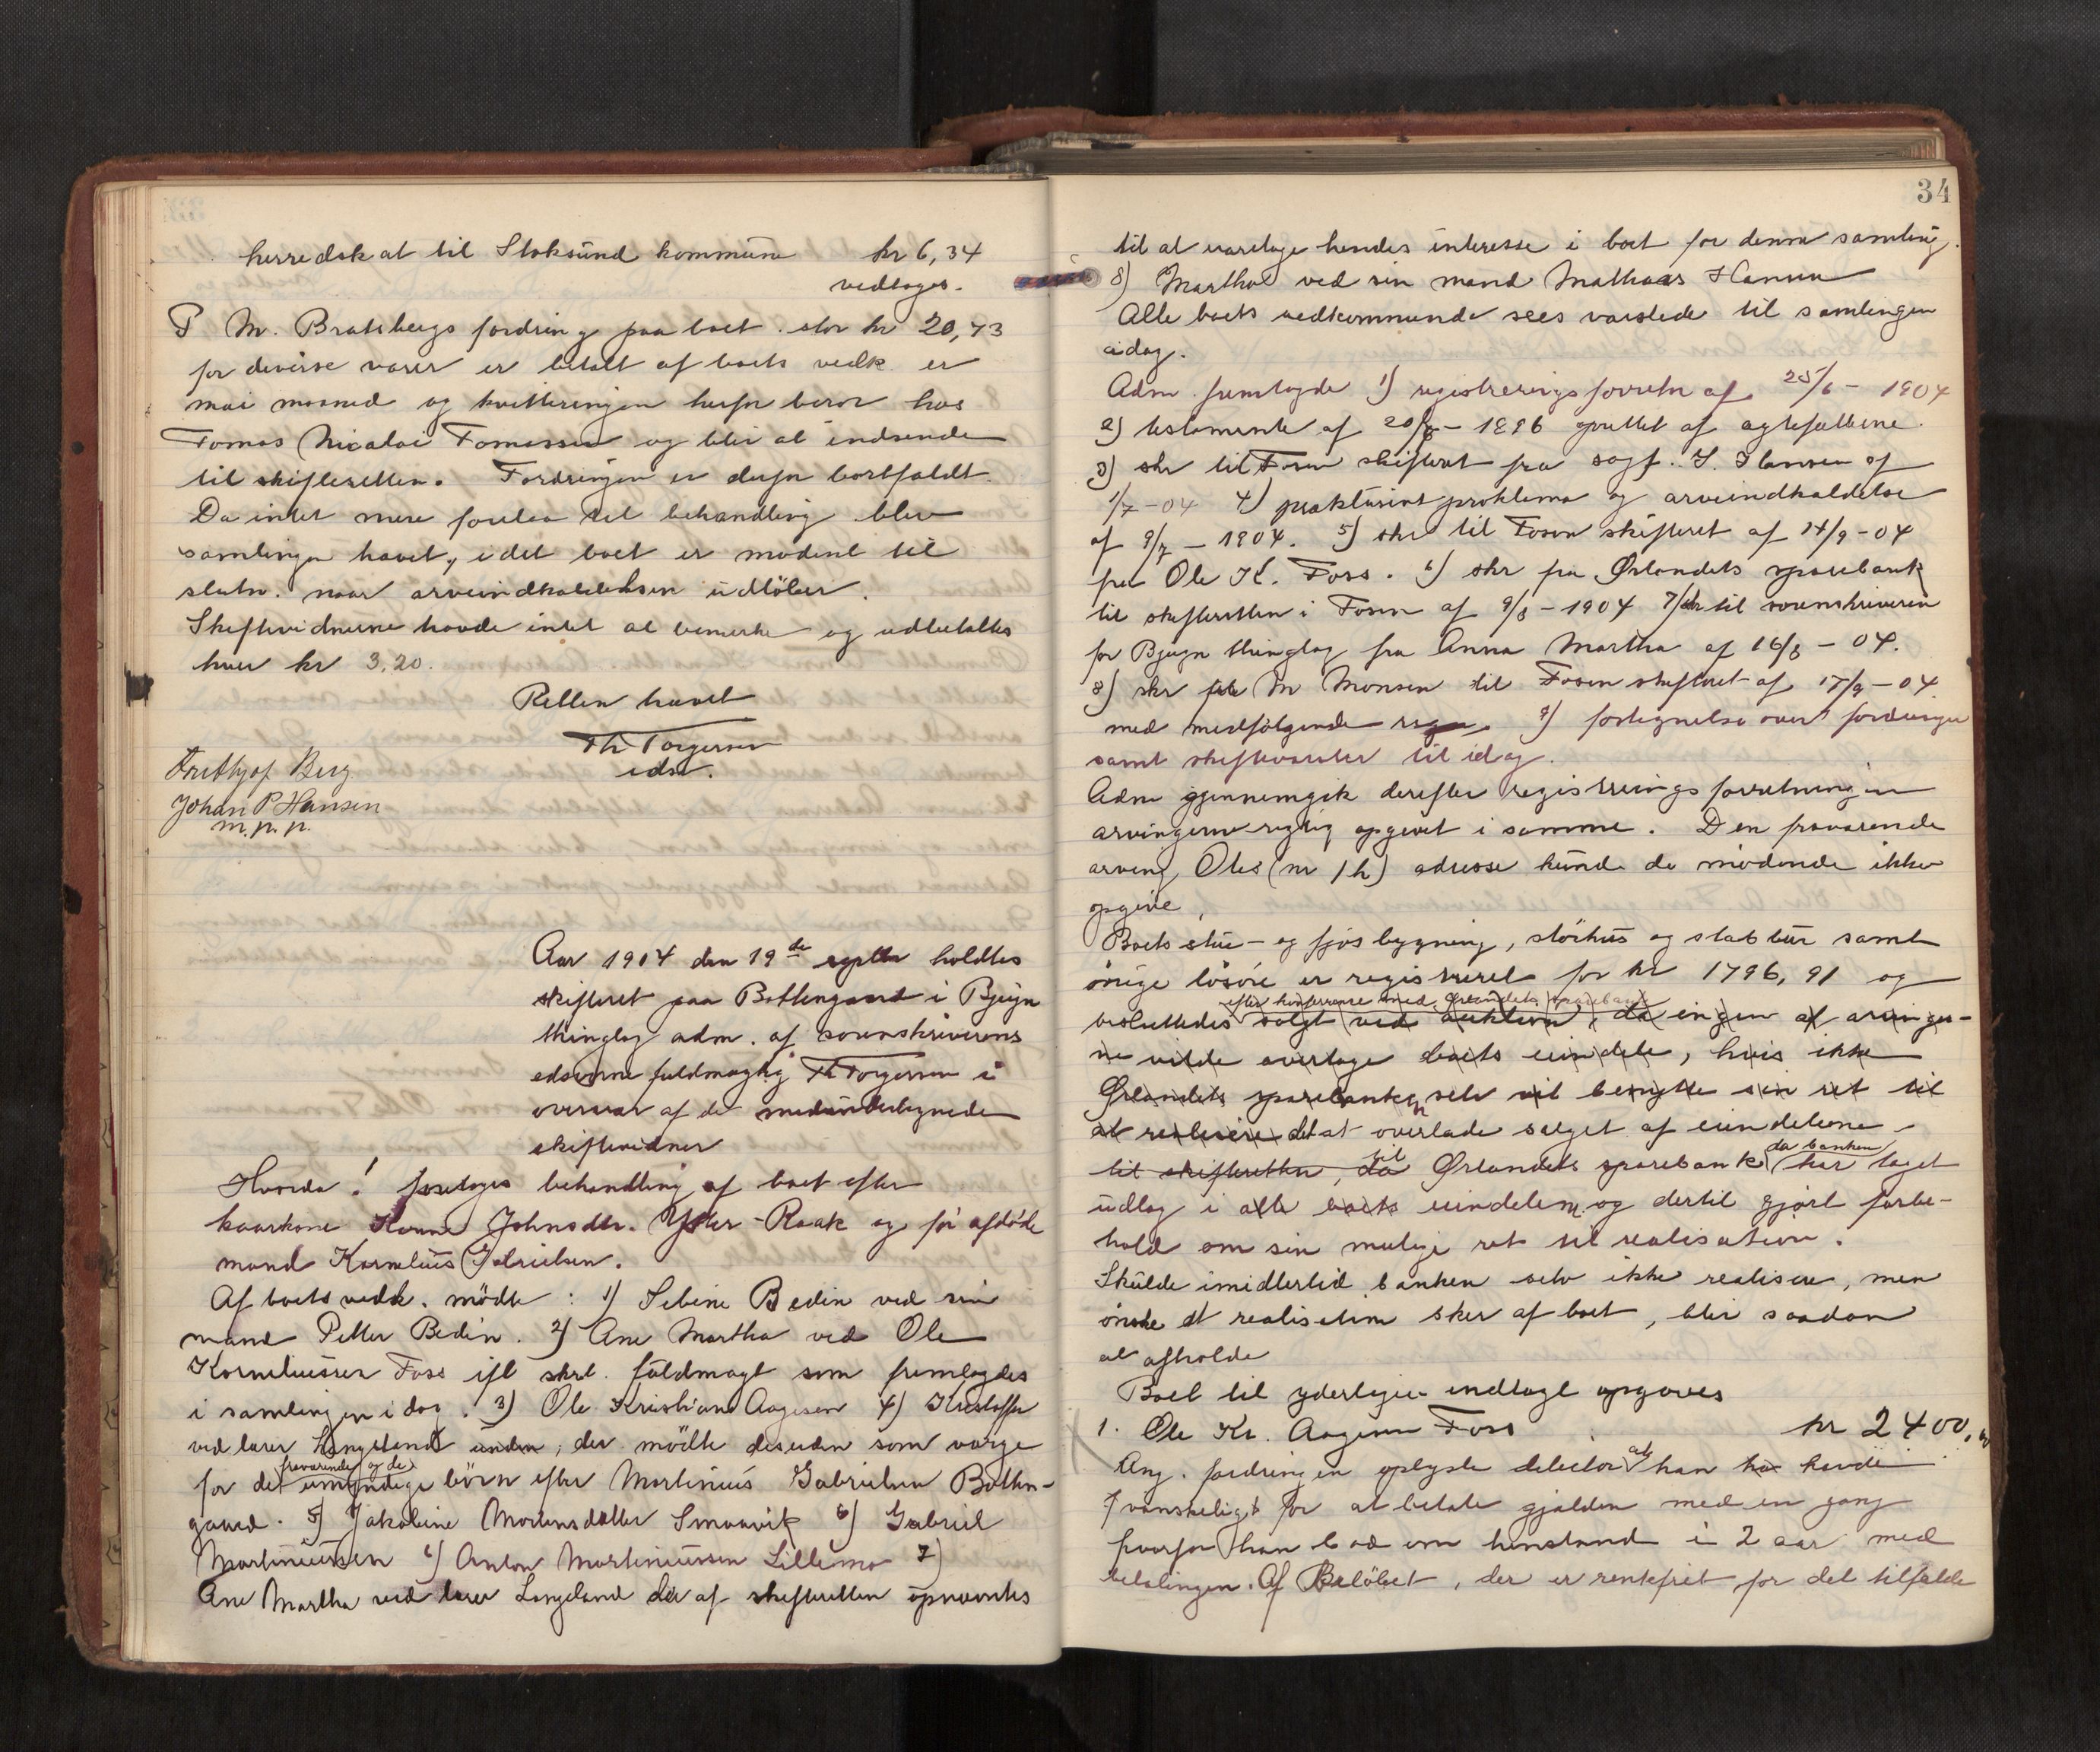 herredskat til Stoksund kommune kr 6,34
vedtoges.
P M. Bratsbergs fordring paa boet stor kr 20,73
for diverse varer er betalt af boets vedk. er
mai maaned og kvitteringen herfor beror hos
Tomas Nicolai Tomassen og blir at indsende
til skifteretten. Fordringen er derfor bortfaldt.
Da intet mere forelaa til behandling blev
samlingen hævet, idet boet er modent til
slutn. naar arveindkaldelsen udløber.
Skiftevidnerne havde intet at bemerke og udbetaltes
hver kr 3,20.
Retten hævet
Th Torgersen
edsv.
Frithjof Berg
Johan P Hansen
m. p. p.
Aar 1904 den 19de septbr holdtes
skifteret paa Bottengaard i Bjugn
thinglag adm. af sorenskriverens
edsvorne fuldmægtig Th Torgersen i
overvær af de medundertegnede
skiftevidner
Hvorda! foretoges behandling af boet efter
kaarkone Johnsdtr. Yster-Raak og før afdøde
mand Kornelius Gabrielsen.
Af boets vedk. mødte: 1) Sebine Bedin ved sin
mand Petter Bedin. 2) Ane Martha ved Ole
Korneliussen Foss ifl skrl. fuldmagt som fremlagdes
i samlingen idag. 3) Ole Kristian Aagesen 4) Kristoffer
ved lærer Langeland , der mødte desuden som værge
fraværende og de
for de umyndige børn efter Martinius Gabrielsen Botten-
gaard. 5) Jakobine Mortensdatter Smaavik 6) Gabriel
Martinussen 6) Anton Martiniussen Lillemo 7)
Ane Martha ved lærer Langeland der af skifteretten opnævntes
34
til at varetage hendes interesse i boet for denne samling.
8) Martha ved sin mand Mathæas Hansen
Alle boets vedkommende sees varslede til samlingen
idag.
Adm. fremlagde 1) registreringsforretn af 25/6 - 1904
2) testamente af 20/8 - 1896 oprettet af ægtefællerne.
3) skr til Fosen skifteret fra sagf. J. Hansen af
1/7 - 04 4) proklama og arveindkaldelse
af 9/7 - 1904. 5) skr til Fosen skifteret af 14/9 - 04
fra Ole K. Foss. 6) skr fra Ørlandets sparebank
til skifteretten i Fosen af 9/8 - 1904 7) skr til sorenskriveren
for Bjugn thinglag fra Anna Martha af 16/8 - 04.
8) skr M Monsen til Fosen skifteret af 17/9 - 04
med medfølgende regn. 9) fortegnelse over fordringer
samt skiftevarsler til idag.
Adm gjennemgik derefter registreringsforretningen
arvingerne rigtig opgivet i samme. Den fraværende
arving Oles (nr 1 h) adresse kunde de mødende ikke
opgive.
Boets stue- og fjøsbygning, størhus og stabbur samt
øvrige løsøre er registreret for kr 1796,91 og
efter konferense med Ørlandets sparebank
besluttedes solgt ved auktion, da ingen af arvinger-
ne vilde overtage boets eiendele, hvis ikke
Ørlandets sparebank selv vil benytte sin ret til
at realisere det at overlade salget af eiendelene
til skifteretten, da til Ørlandets sparebank da banken har taget
udlæg i alle boets eiendelene og dertil gjort forbe-
hold om sin mulige ret til realisation.
Skulde imidlertid banken selv ikke realisere, men
ønske at realisation sker af boet, blir saadan
at afholde
Boet til yderligere indtægt opgaves
1. Ole Kr. Aagesen Foss kr 2400,00
Ang. fordringen oplyste debitor at han ha havde
vanskeligt for at betale gjælden med en gang
hvorfor han bad om henstand i 2 aar med
betalingen. Af Beløbet, der er rentefrit for det tilfælde